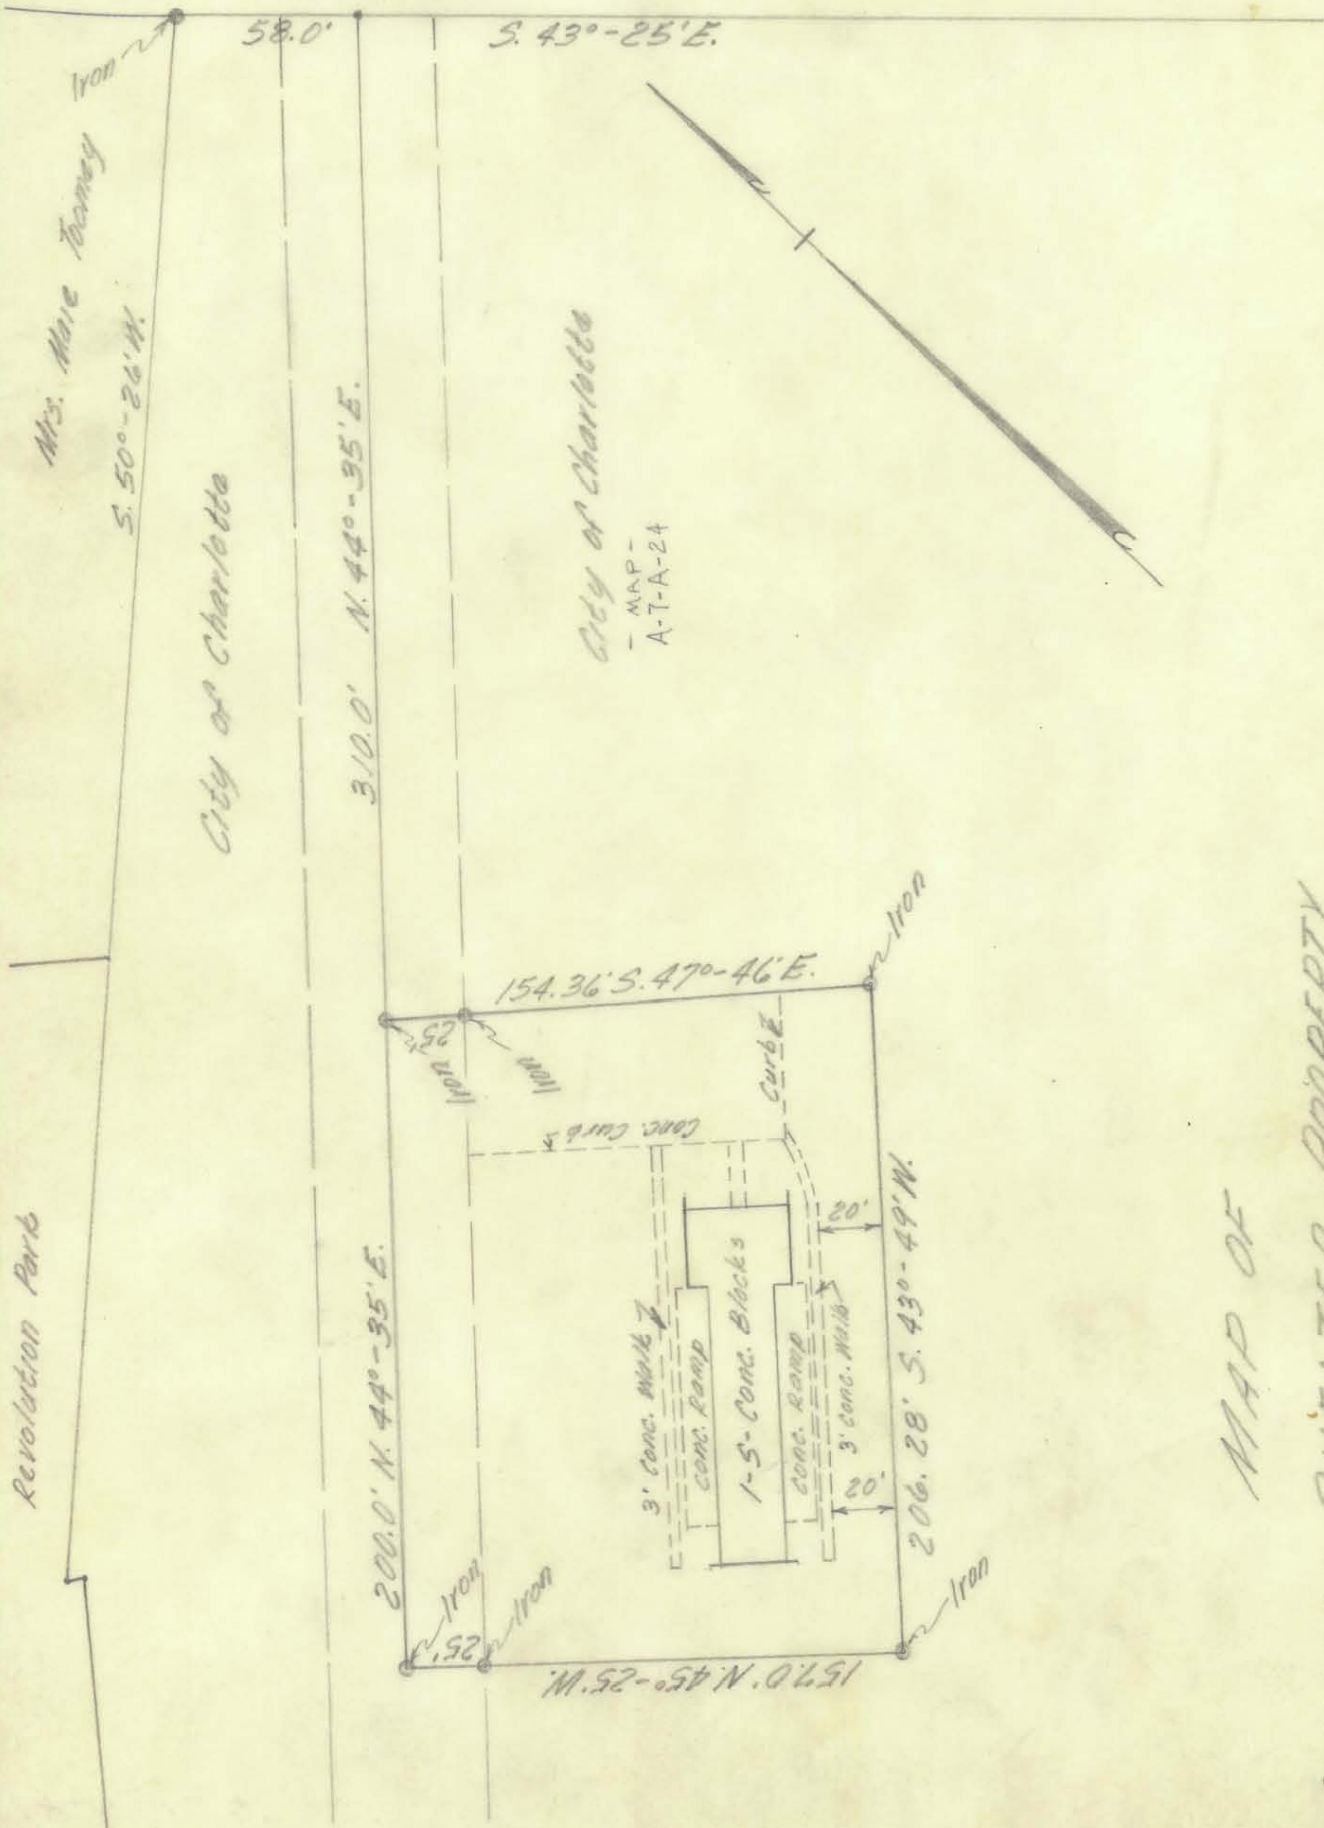 Iron
58.0'
S. 43°-25' E.
Mrs. Marie Toomey
S. 50°-26' W.
City of Charlotte
310.0' N. 44°-35' E.
City of Charlotte
- MAP -
A-T-A-24
Revolution Park
154.36' S. 47°-46' E.
Iron
25'
Iron
Iron
Conc. Curb
Curb
200.0' N. 44°-35' E.
3' Conc. Walk
Conc. Ramp
1-S-Conc. Blocks
Conc. Ramp
3' Conc. Walk
20'
20'
206.28' S. 43°-49' W.
Iron
25'
Iron
Iron
157.0' N. 45°-25' W.
MAP OF
PROPERTY